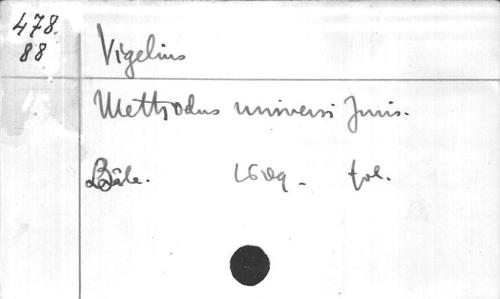 478.
88
Vigelius
Methodus universi Juris.
Bâle. 1609. fol.